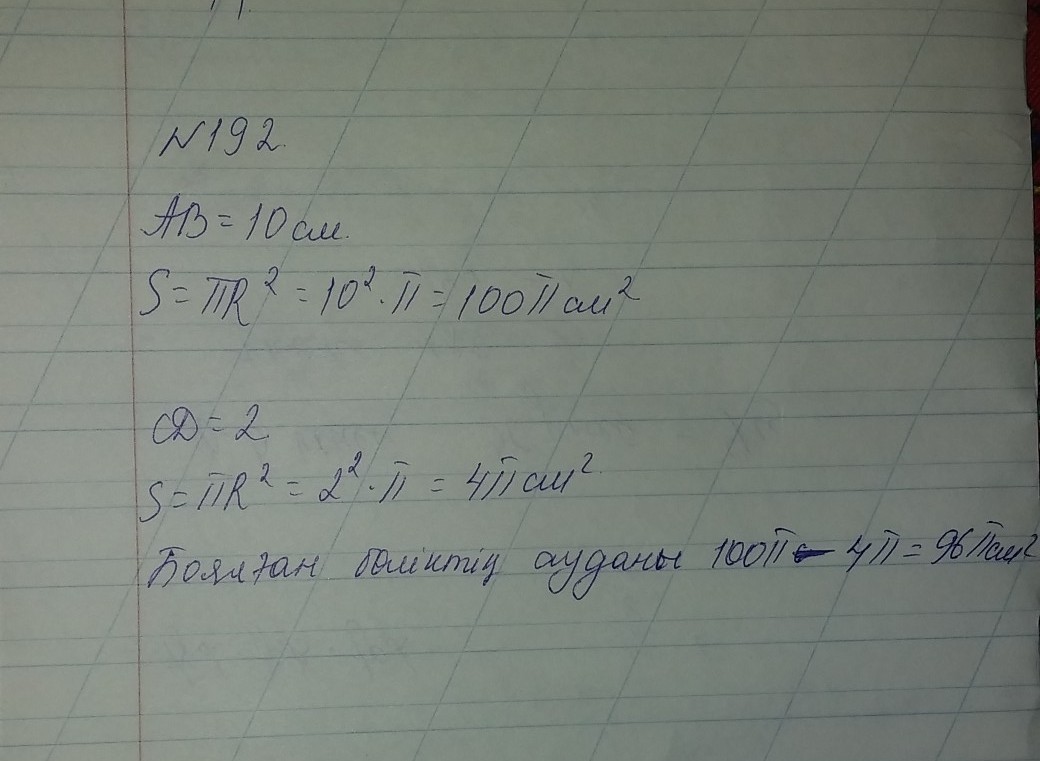 N192.
AB = 10 см.
S = πR² = 10² · π = 100π см²
CD = 2
S = πR² = 2² · π = 4π см².
Боялған бөліктің ауданы 100π - 4π = 96π см²